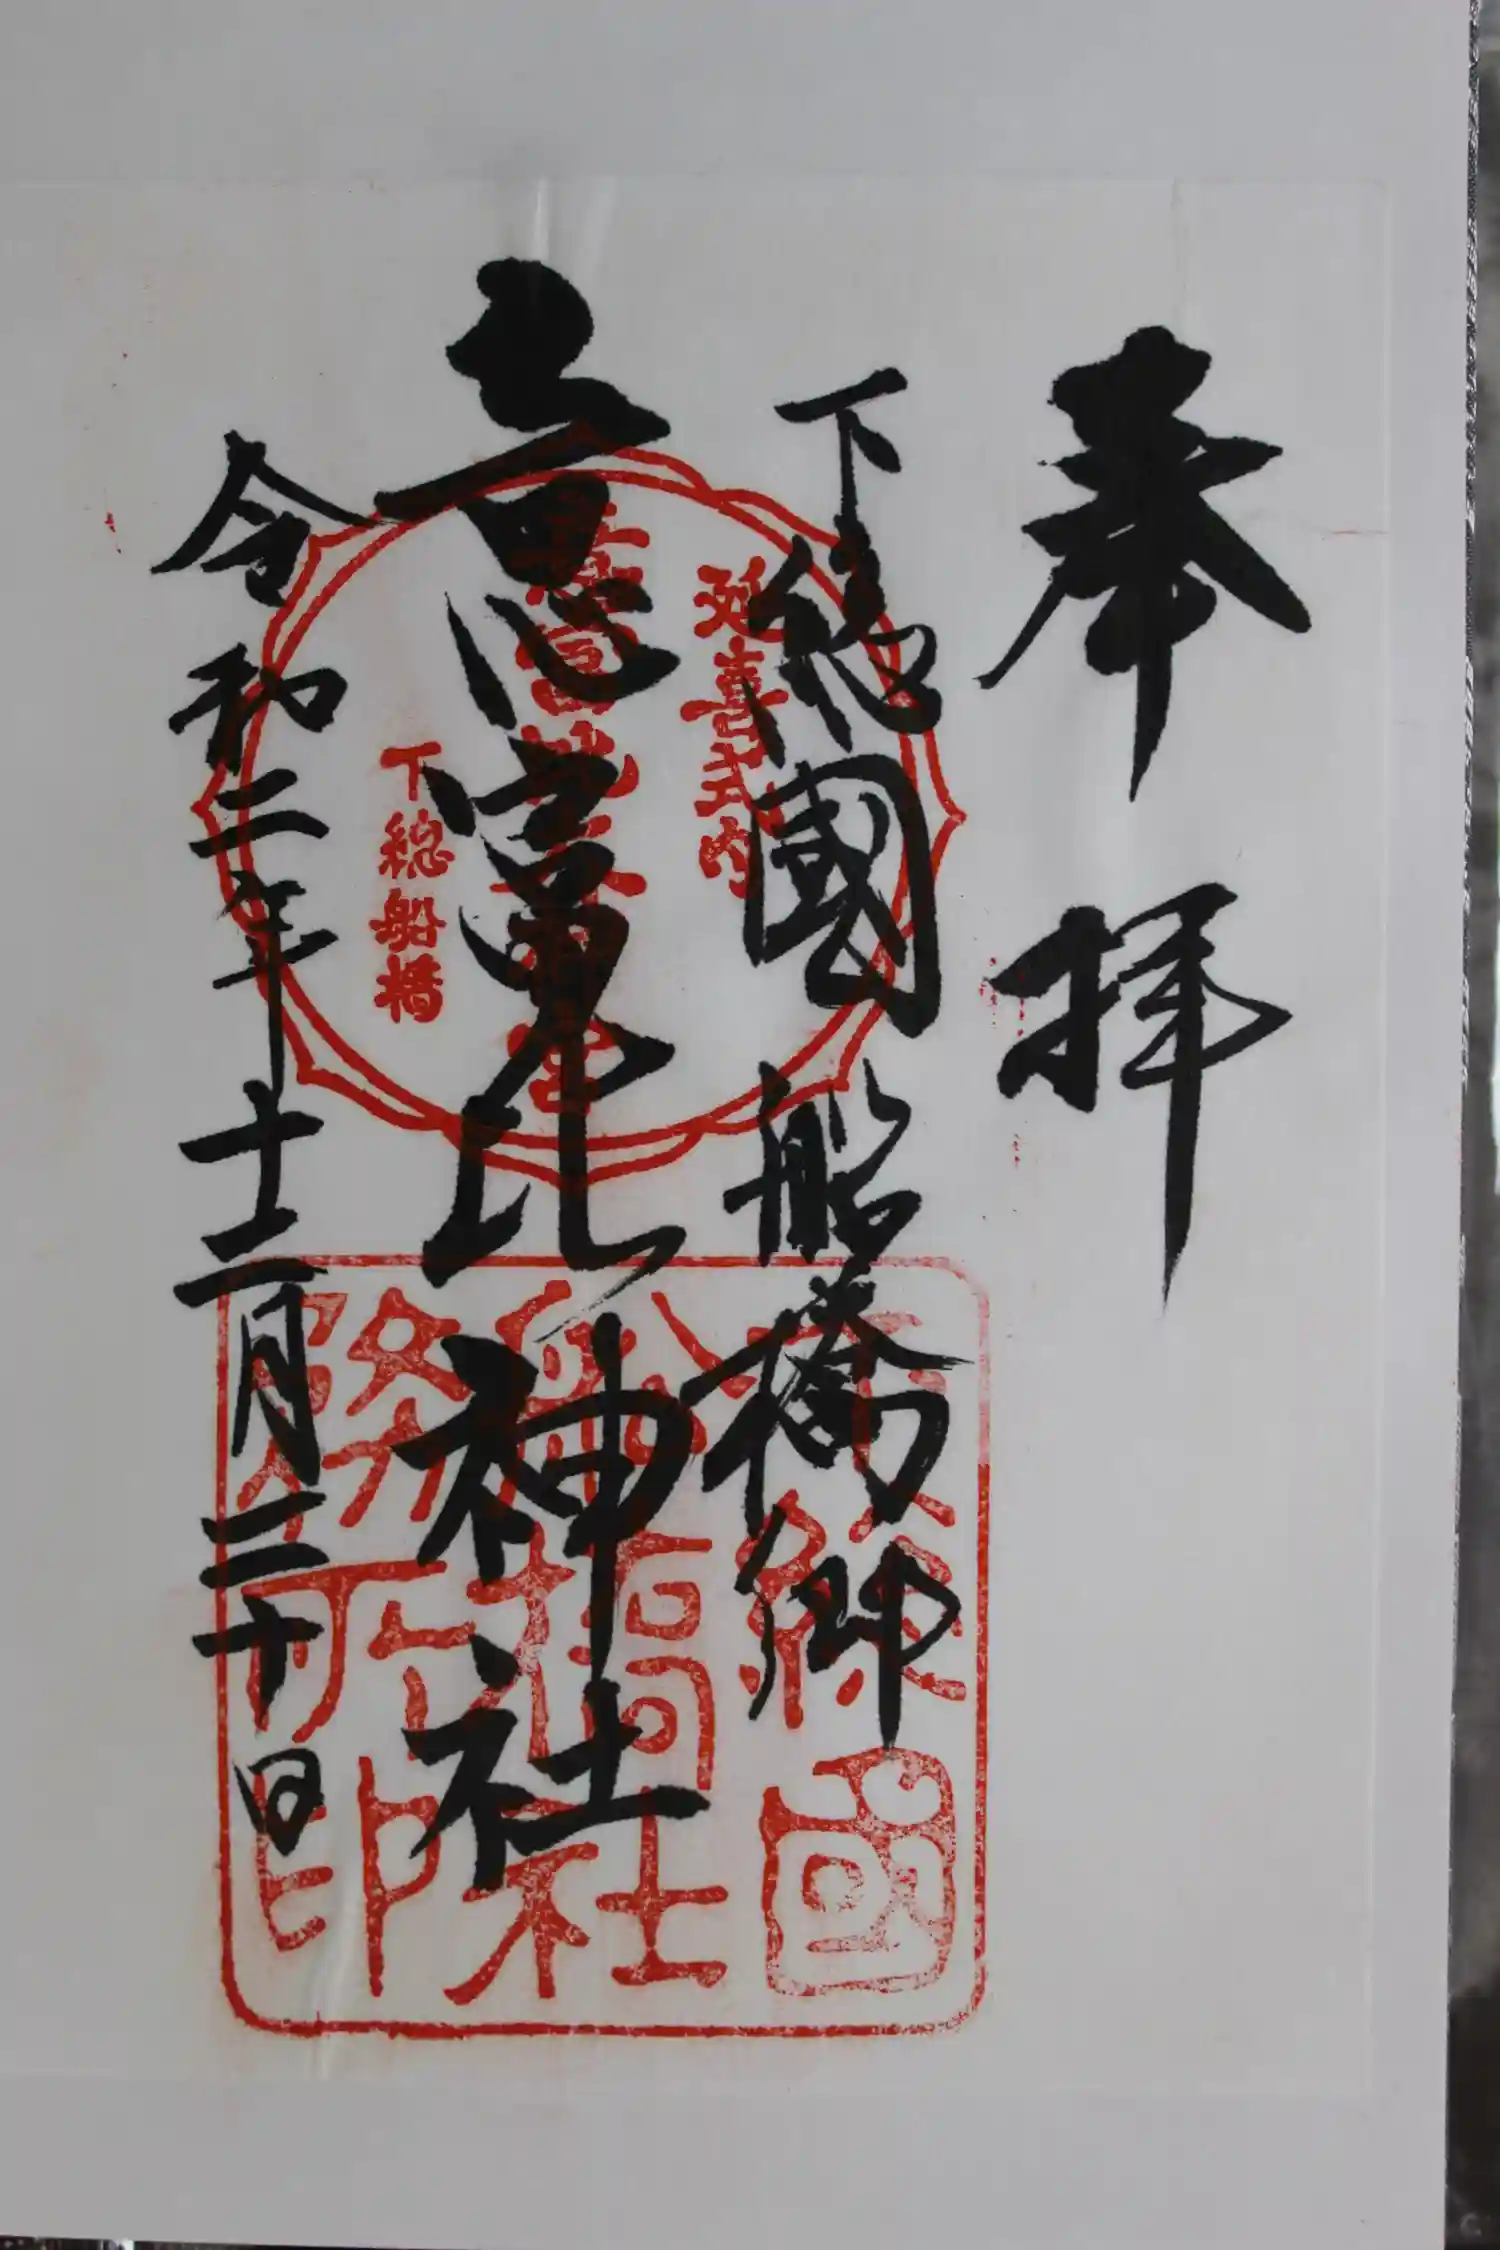 奉拝
下總國船橋郷
意富比神社
令和二年十二月三十日
延喜式内
意富比神社
下総船橋
國
船橋社
務所印